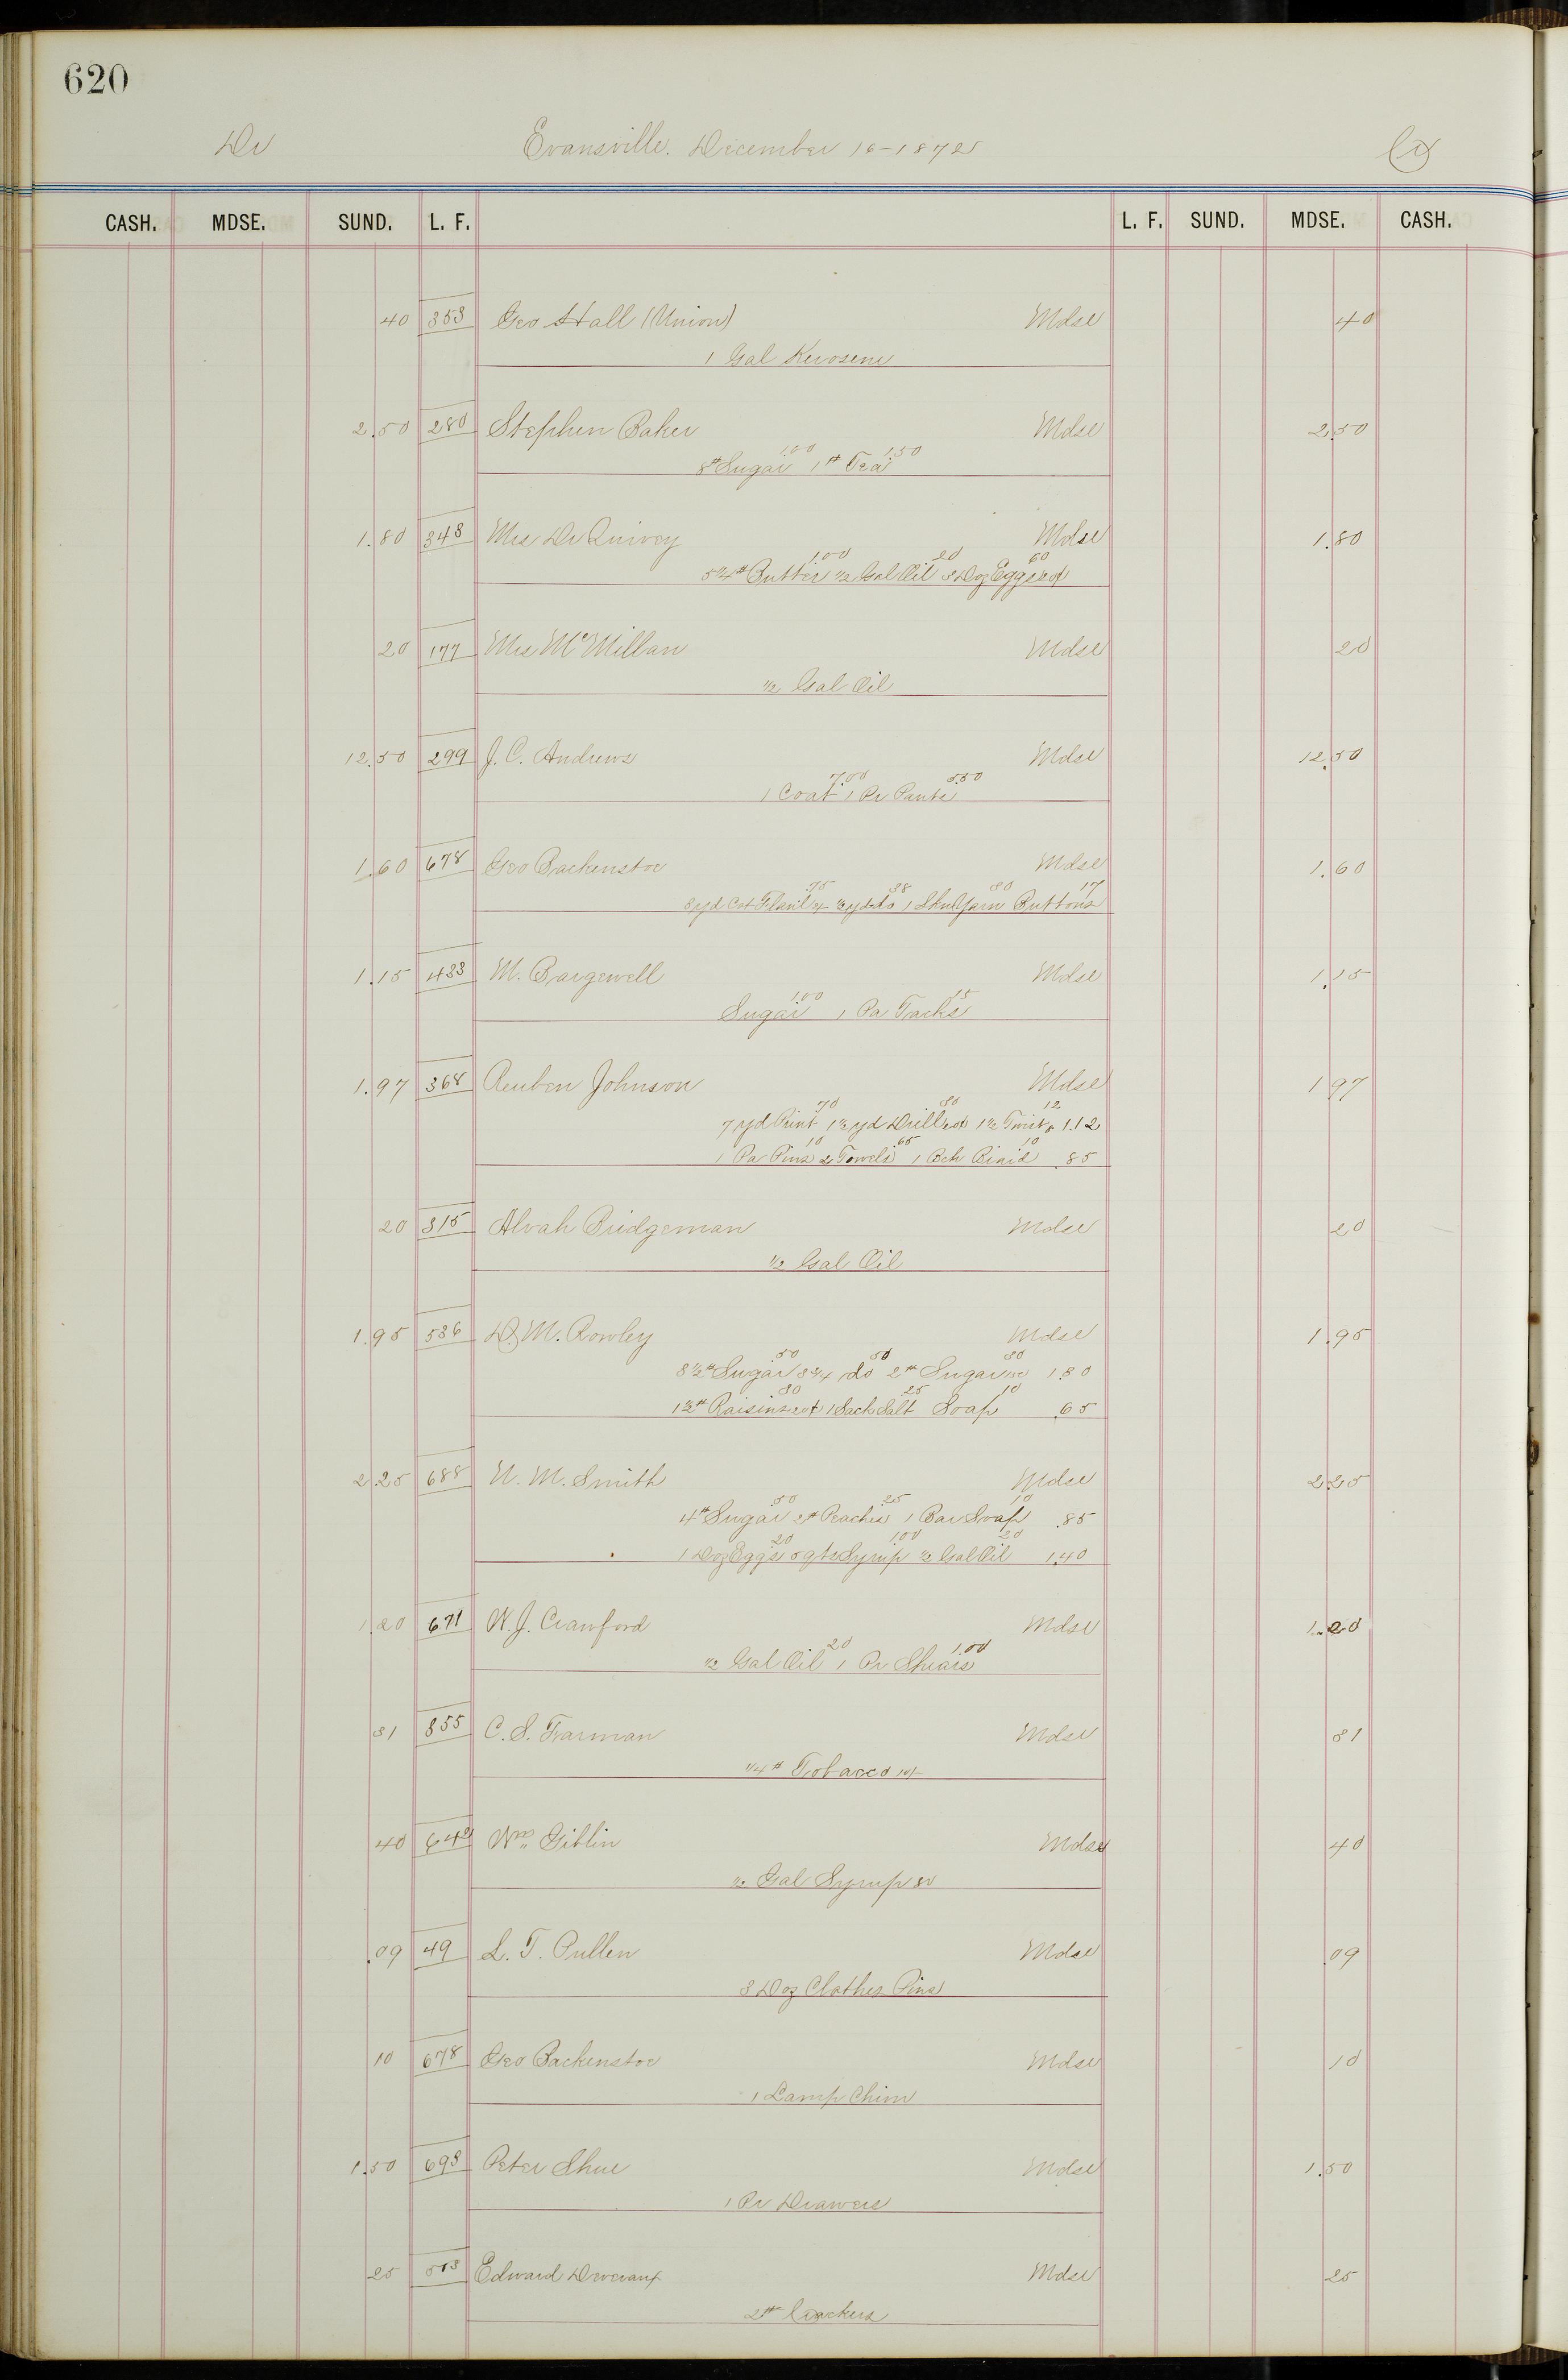 620
Dr Evansville. December 16-1872 Cr
CASH. MDSE. SUND. L. F. L. F. SUND. MDSE. CASH.
40 353 Geo Hall (Union) Mdse 40
1 Gal Kerosene
2.50 280 Stephen Baker Mdse 2.50
8# Sugar 1.00 1# Tea 1.50
1.80 348 Mrs Dr Quivey Mdse 1.80
Butter 1.00 1/2 Gal Oil 20 3 Doz Eggs 60
20 177 Mrs McMillan Mdse 20
1/2 Gal Oil
12.50 299 J. C. Andrews Mdse 12.50
1 Coat 7.00 1 Pr Pants 5.50
1.60 678 Geo Backenstoe Mdse 1.60
3 yd 75 38 Yarn 30 Buttons 17
1.15 433 M. Bargewell Mdse 1.15
Sugar 1.00 1 Pa Tacks 15
1.97 368 Reuben Johnson Mdse 1.97
7 yd Print 70 1 1/2 yd Drill 30 Twist 12 1.12
1 Pa Pins 10 2 Towels 65 1 Bch 10 .85
20 315 Alvah Bridgeman Mdse 20
1/2 Gal Oil
1.95 536 D. M. Rowley Mdse 1.95
Sugar 50 do 50 2# Sugar 30 1.30
Raisins 30 1 Sack Salt 25 Soap 10 .65
2.25 688 N. M. Smith Mdse 2.25
4# Sugar 50 2# Peaches 25 1 Bar Soap 10 .85
1 Doz Eggs 20 5 qts Syrup 1.00 1/2 Gal Oil 20 1.40
1.20 671 W. J. Crawford Mdse 1.20
1/2 Gal Oil 20 1 Pr Shears 1.00
31 355 C. S. Mdse 31
1/4# Tobacco
40 Wm Giblin Mdse 40
1/2 Gal Syrup 80
.09 49 L. T. Pullen Mdse .09
3 Doz Clothes Pins
10 678 Geo Backenstoe Mdse 10
1 Lamp Chim
1.50 693 Peter Shue Mdse 1.50
1 Pr Drawers
25 Edward Devereaux Mdse 25
2# Crackers